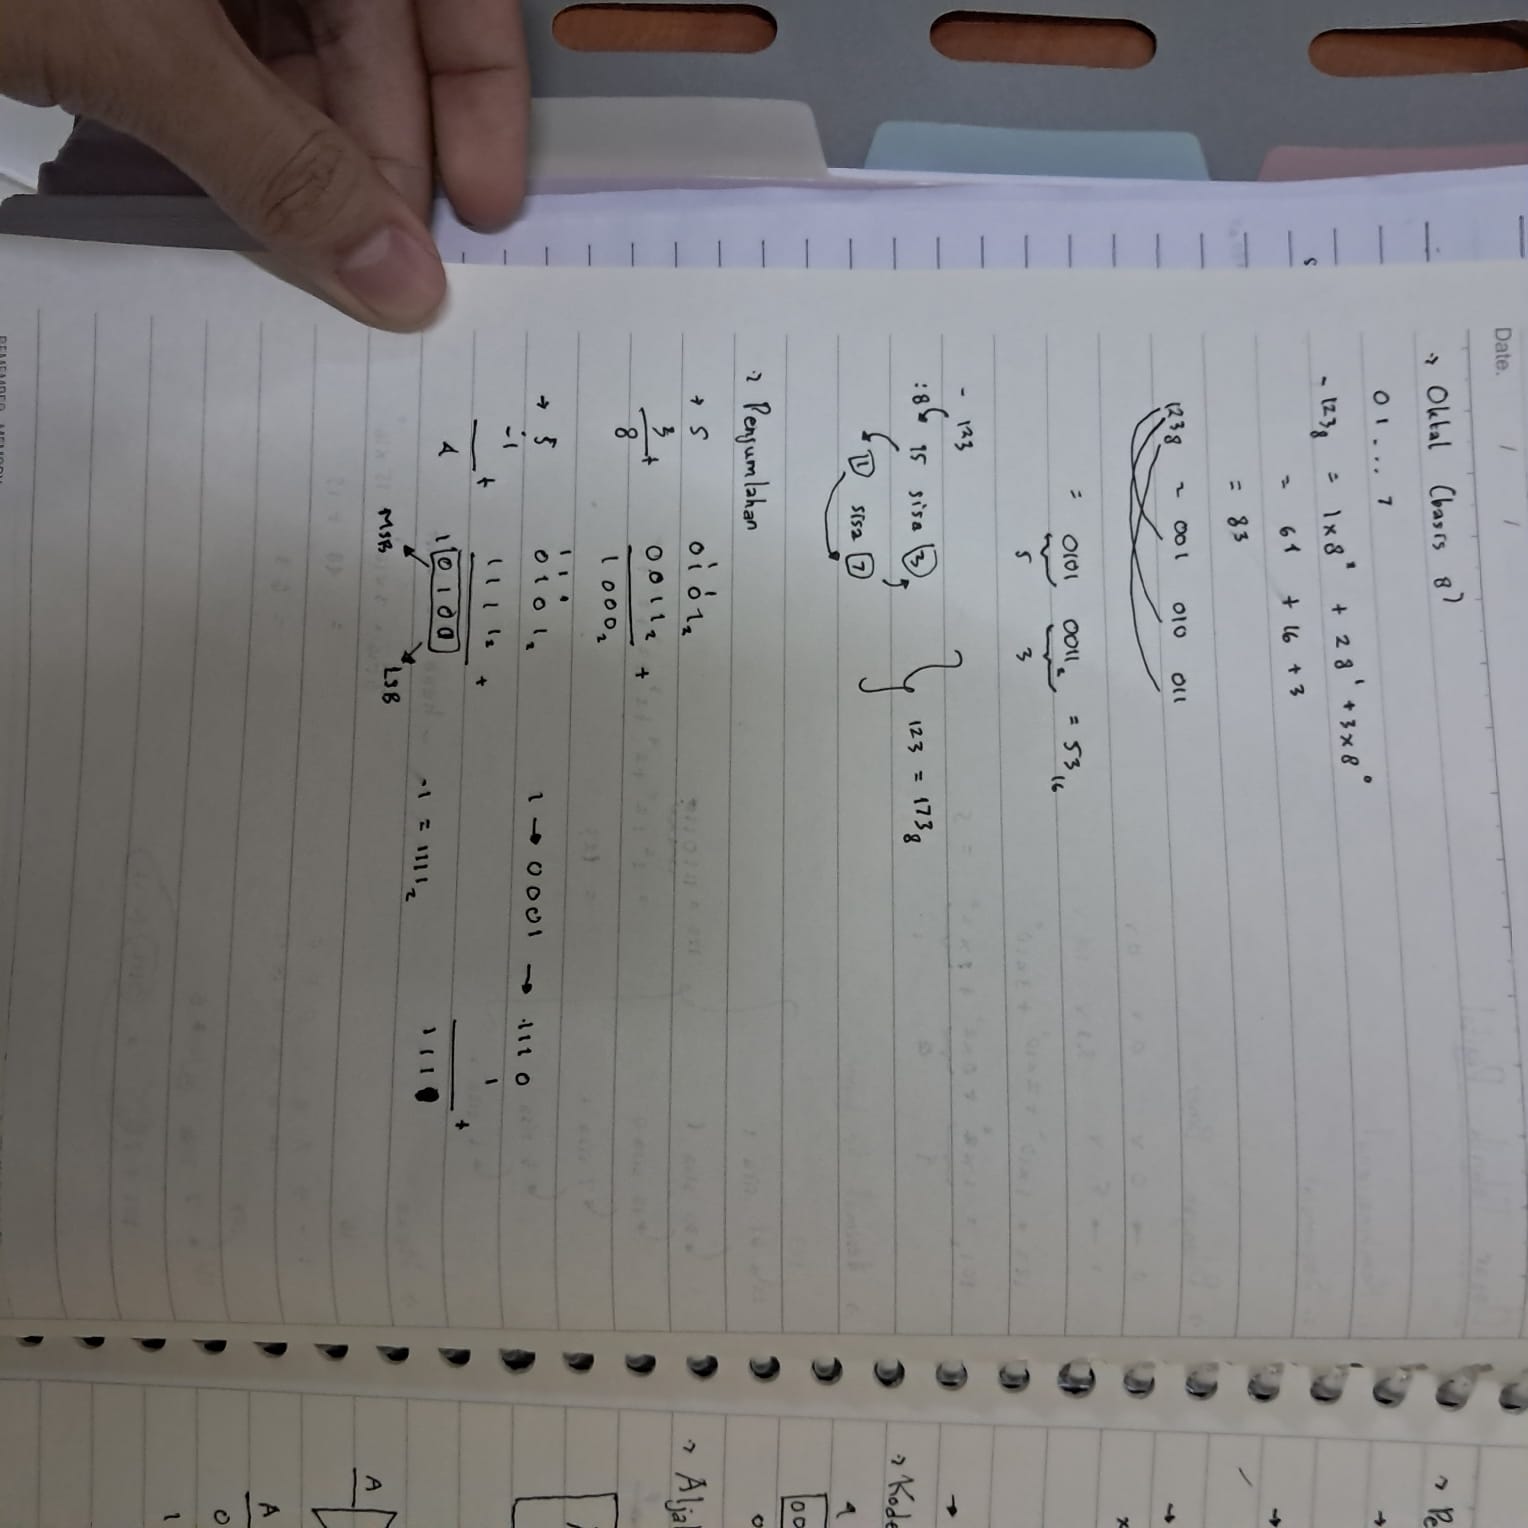 Date. / /
→ Oktal (basis 8)
0 1 . . . 7
- 123₈ = 1×8² + 2 8¹ + 3×8⁰
= 64 + 16 + 3
= 83
123₈ = 001 010 011
= 0101 0011₂ = 53₁₆
5 3
- 123
:8 15 sisa 3
1 sisa 7
123 = 173₈
→ Penjumlahan
→ 5 0101₂
3 + 0011₂ +
8 1000₂
→ 5 0101₂ 1 → 0001 → 1110
-1 + 1111₂ + 1 +
4 1 0100 -1 = 1111₂ 111
MSB LSB
→ Kode
→ Alja
A
A
0
1